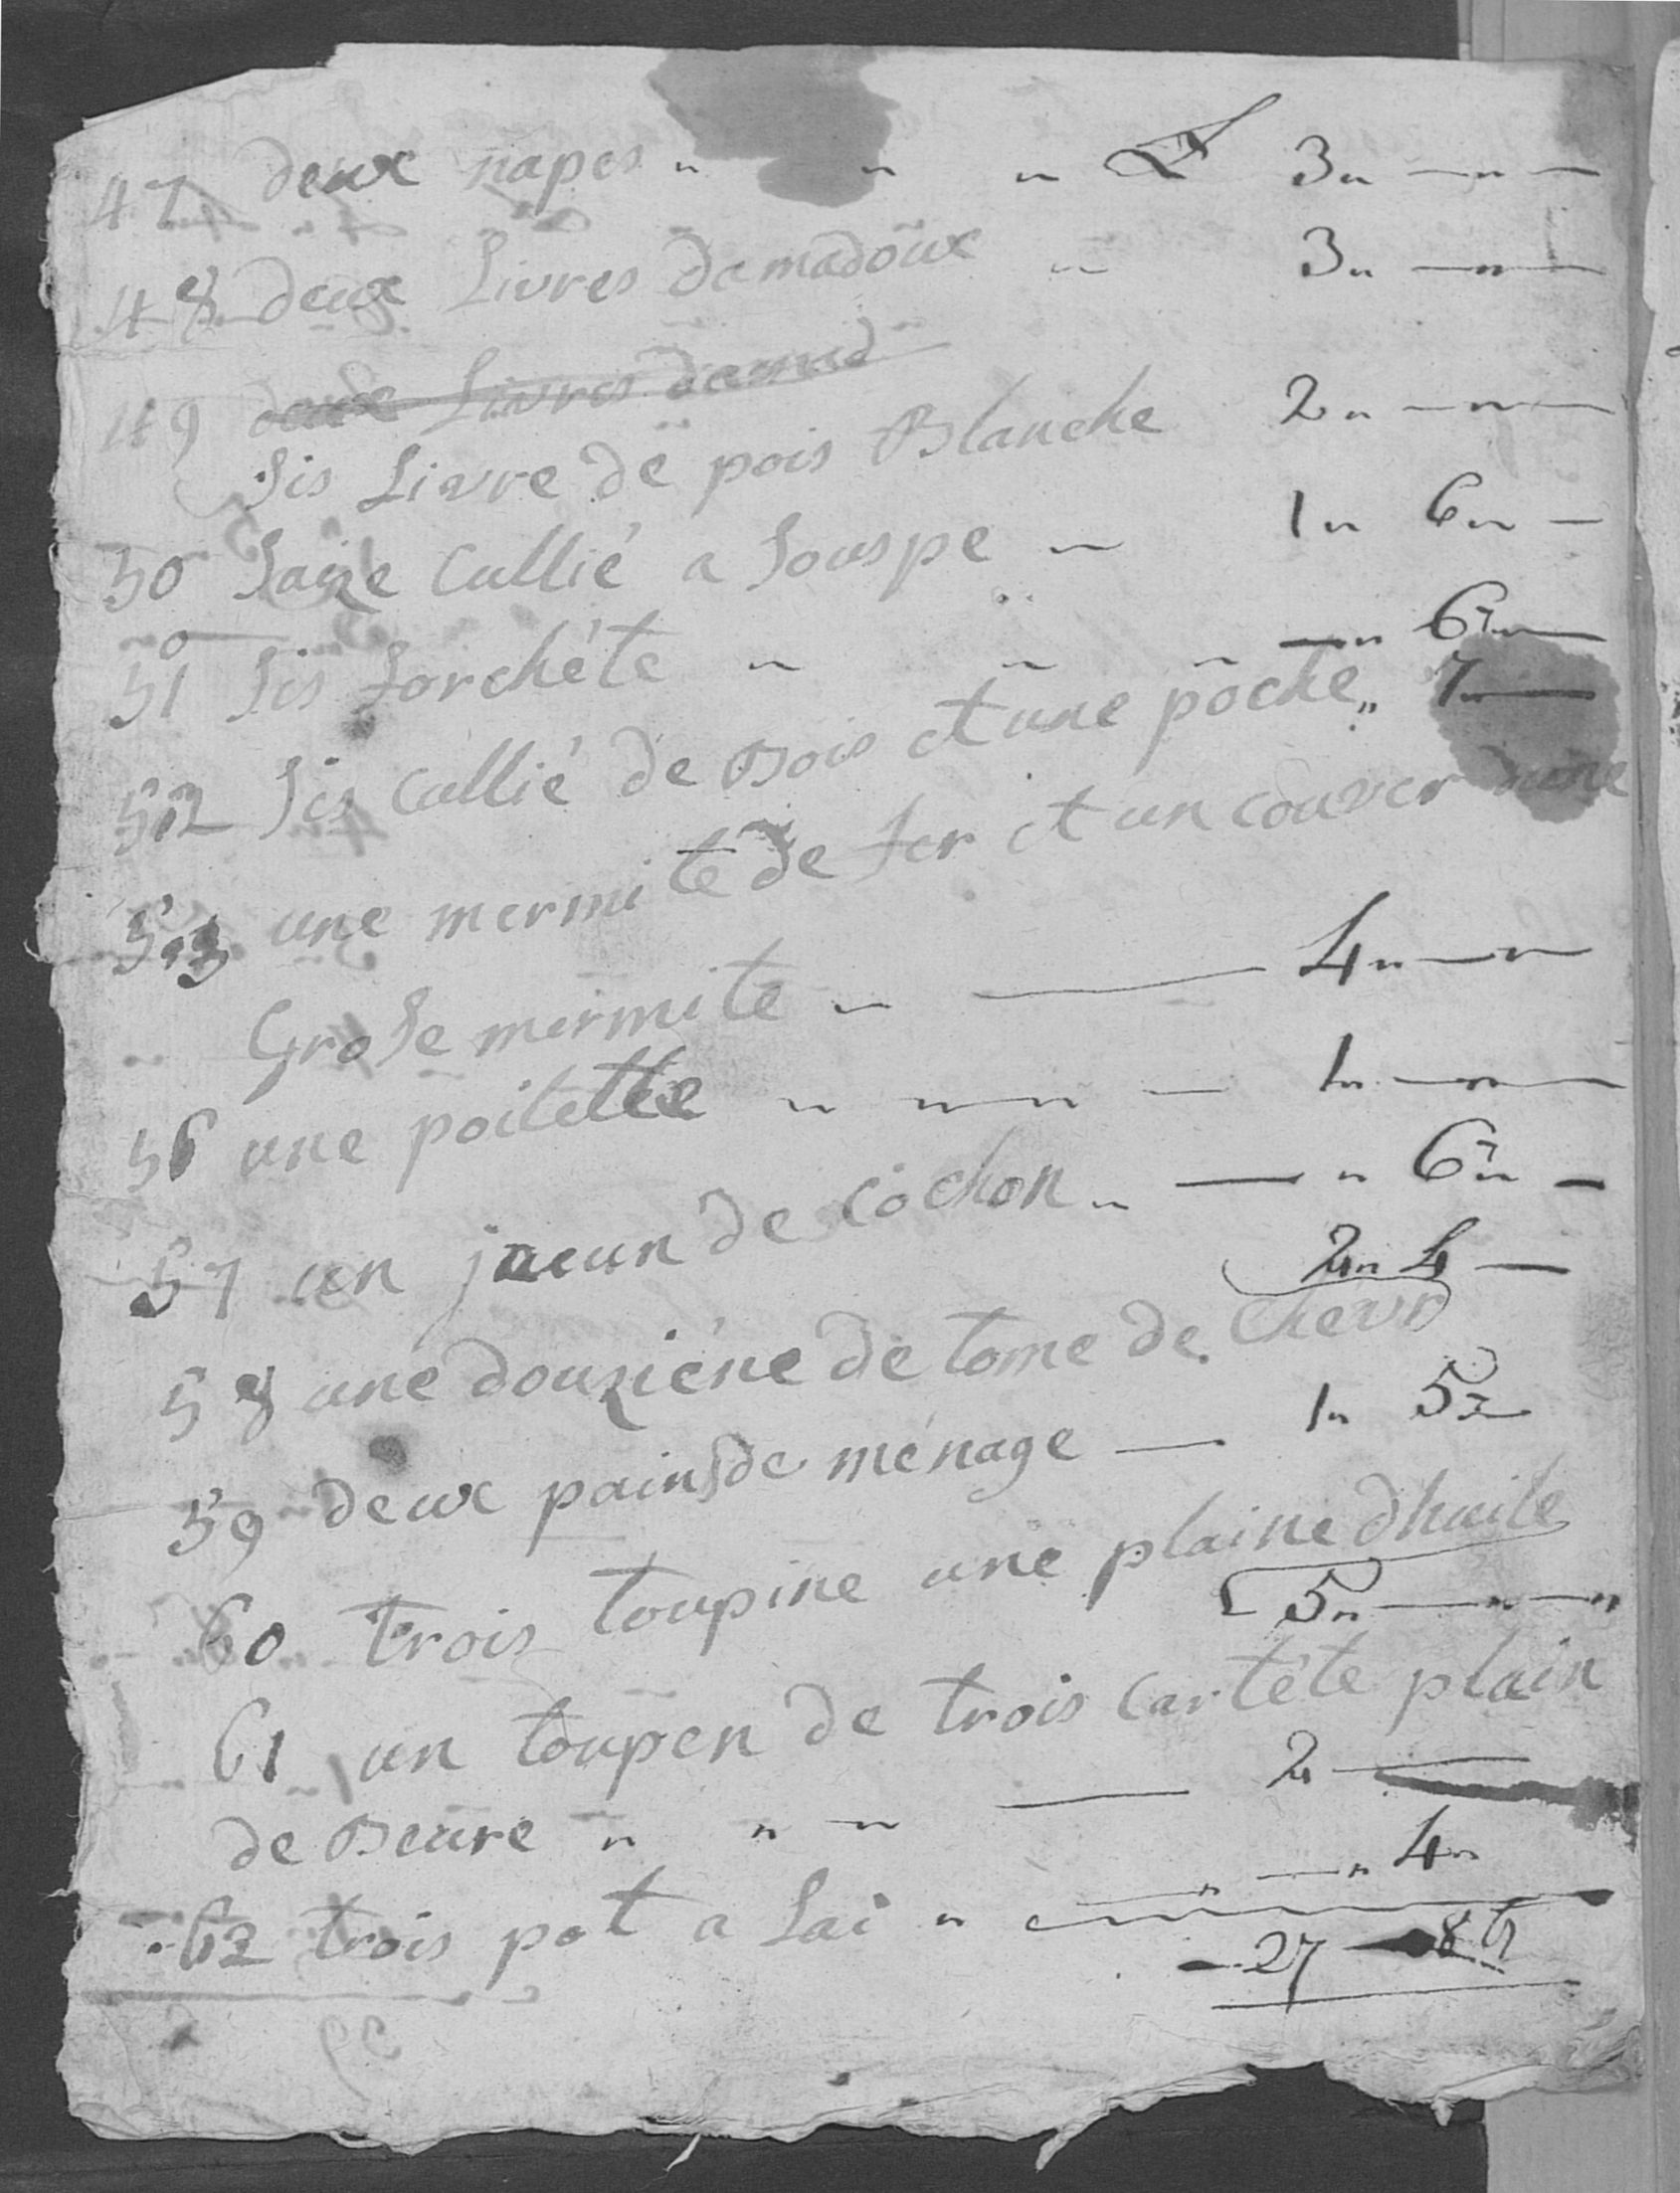 47 deux napes " " " 3" — " —
48 deux Livres damadoux " 3" — " —
49 deux Livres damad
Sis Livre de pois Blanche 2" — " —
50 Saize Cullié a Souspe " 1" 6" —
51 Sis forchéte " " " — " 6" —
52 Sis Cullié de Bois et une poche " 7" —
53 une mermite de fer et un couver dune
Grose mermite " — 4" — "
56 une poitette " " " — 1" — " —
57 un jneun de cochon " — " 6" —
2" 4 —
58 une douziéne de tome de Chevr
59 deux pains de ménage — 1" 5"
60 trois toupine une plaine dhuile
5" — " — "
61 un toupen de trois cartéte plain
de Beure " " " — 2" —
62 trois pot a Lai " — " — " 4"
27 — 8 6